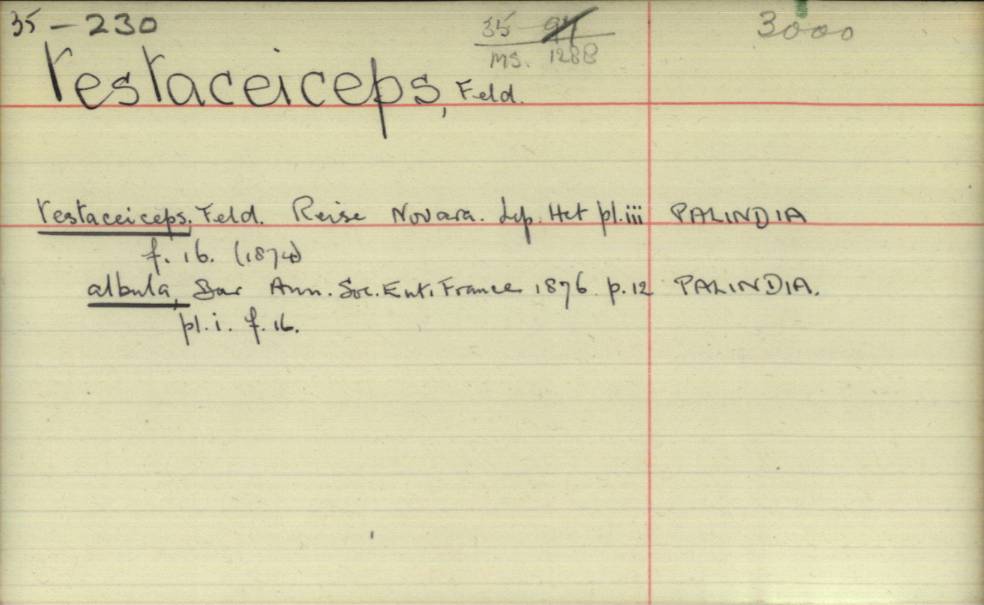 35 – 230
35 94
ms. 1288
3000
testaceiceps, Feld.
testaceiceps. Feld. Reise Novara. Lep. Het pl. iii PALINDIA
f. 16. (1874)
albula, Bar Ann. Soc. Ent. France 1876 p. 12 PALINDIA.
pl. i. f. 16.